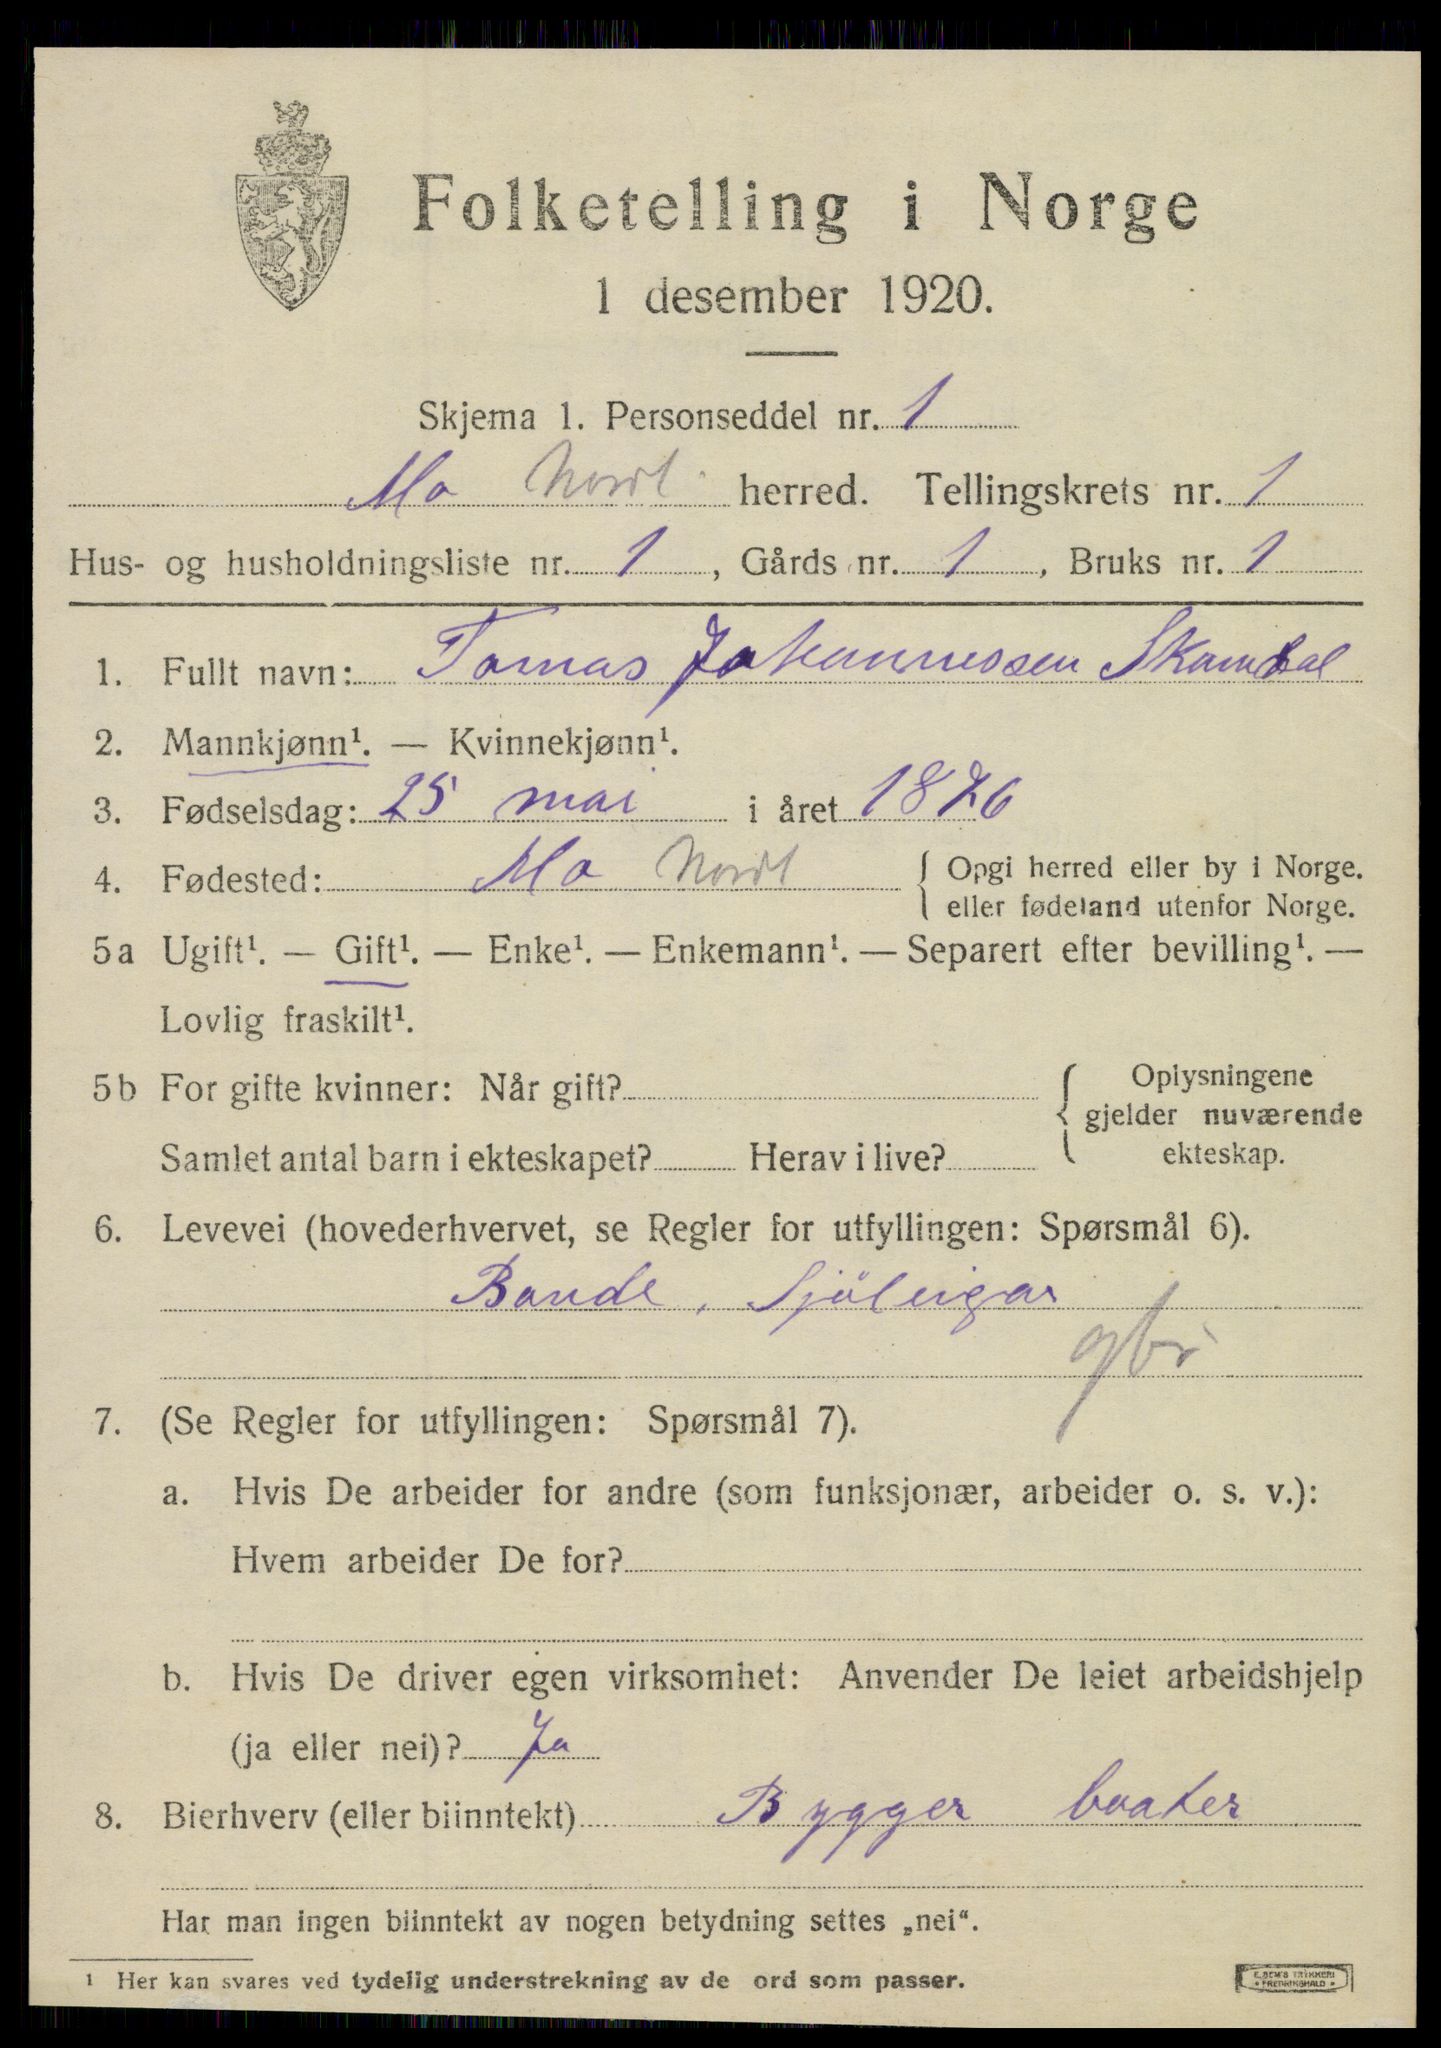 Folketelling i Norge
1 desember 1920.
Skjema 1. Personseddel nr. 1
Mo Nordl. herred. Tellingskrets nr. 1
Hus- og husholdningsliste nr. 1, Gårds nr. 1, Bruks nr. 1
1. Fullt navn: Tomas Johannessen Skamdal
2. Mannkjønn¹. — Kvinnekjønn¹.
3. Fødselsdag: 25 mai i året 1876
4. Fødested: Mo Nordl { Opgi herred eller by i Norge.
eller fødeland utenfor Norge.
5a Ugift¹. — Gift¹. — Enke¹. — Enkemann¹. — Separert efter bevilling¹. —
Lovlig fraskilt¹.
5b For gifte kvinner: Når gift? { Oplysningene
gjelder nuværende
Samlet antal barn i ekteskapet? Herav i live? ekteskap.
6. Levevei (hovederhvervet, se Regler for utfyllingen: Spørsmål 6).
Bonde, Sjöleigar
gbr
7. (Se Regler for utfyllingen: Spørsmål 7).
a. Hvis De arbeider for andre (som funksjonær, arbeider o. s. v.):
Hvem arbeider De for?
b. Hvis De driver egen virksomhet: Anvender De leiet arbeidshjelp
(ja eller nei)? Ja
8. Bierhverv (eller biinntekt) Bygger baater
Har man ingen biinntekt av nogen betydning settes „nei“.
¹ Her kan svares ved tydelig understrekning av de ord som passer.
E. SEM'S TRYKKERI
• FREDRIKSHALD •